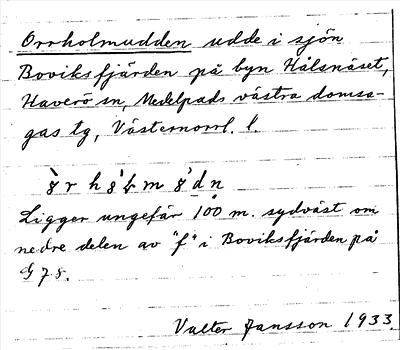 Orrholmudden udde i sjön
Boviksfjärden på byn Hålsnäset,
Haverö sn, Medelpads västra domsa-
gas tg, Västernorrl. l.
Ligger ungefär 100 m. sydväst om
nedre delen av "f" i Boviksfjärden på
G 78.
Valter Jansson 1933.